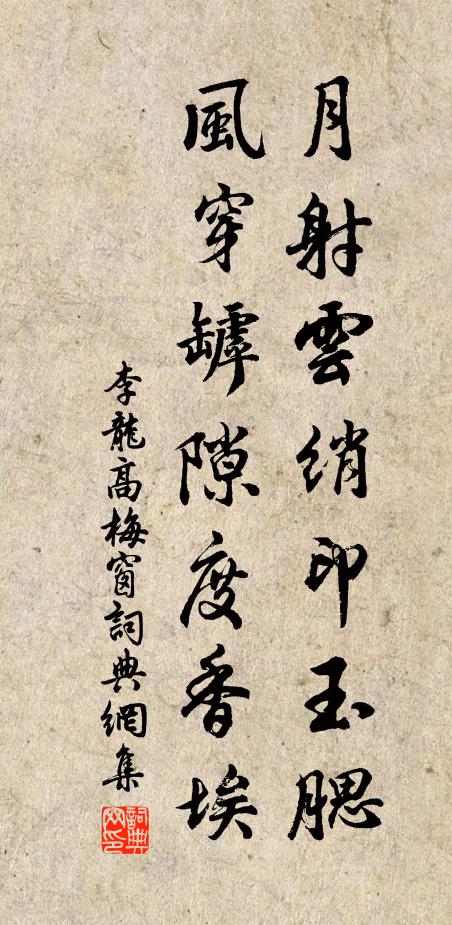 月射雲綃印玉腮
風穿罅隙度香埃
李龍高梅窗詞典網集
詞典網印